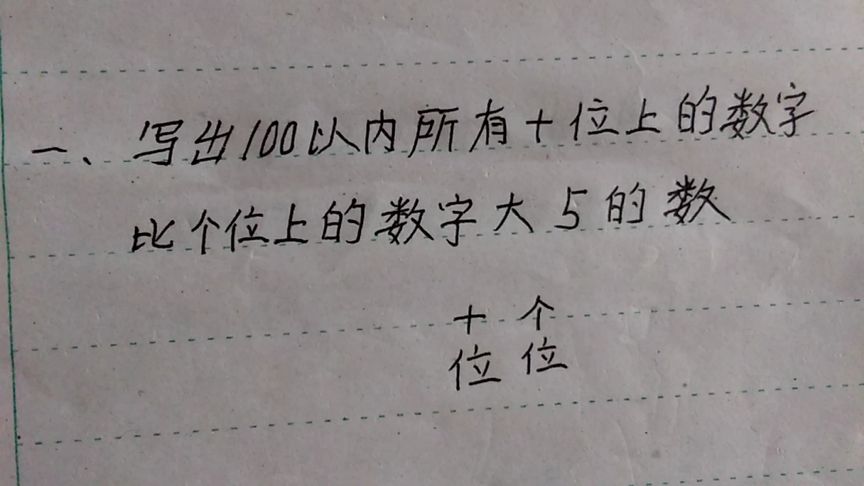 一、写出100以内所有十位上的数字
比个位上的数字大5的数
十个
位位